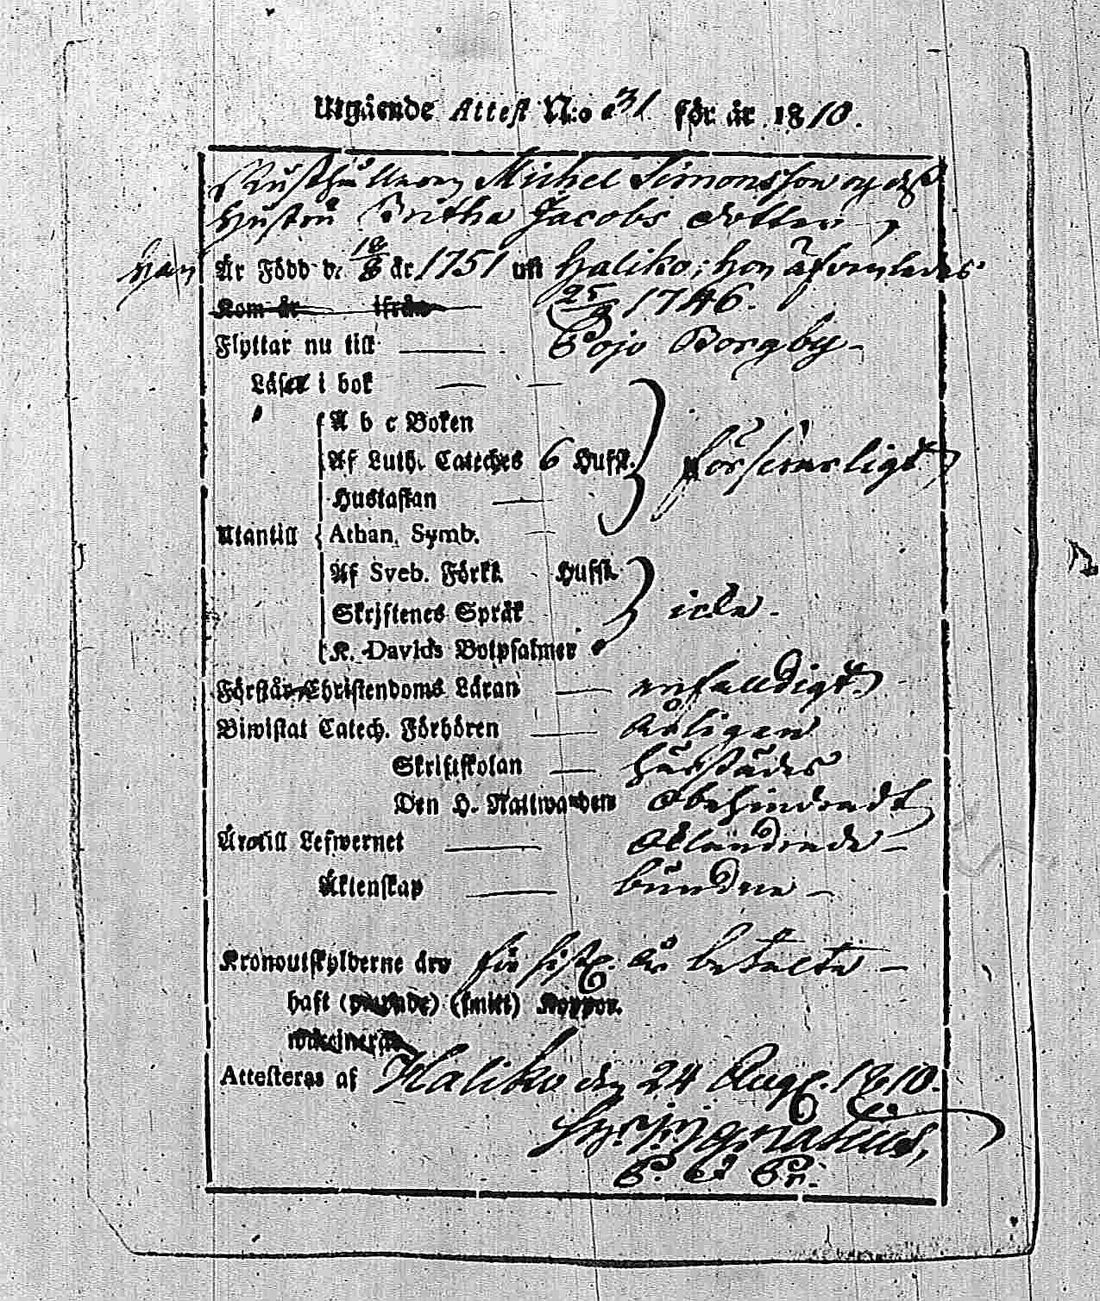 Utgående Attest N:o 31 för år 1810.
Rusthållaren Michel Simonsson och dess
Hustru Britha Jacobs dotter,
Han Är Född d. 18/8 år 1751 uti Haliko; hon äfvenledes
Kom år ifrån 25/9 1746.
Flyttar nu till Pojo Borgby
Läser i bok
A b c Boken
Af Luth. Cateches 6 Hufst. försvarligt
Hustaflan
Utantill Athan. Symb.
Af Sveb. Förkl. Hufst.
Skriftenes Språk icke.
K. Davids Botpsalmer
Förstår Christendoms Läran enfalldigt
Biwistat Catech. Förhören årligen
Skriftskolan härstädes
Den H. Nattwarden obehindradt
Är till Lefwernet oklandrade
Äktenskap bundne
Kronoutskylderne äro för sistl. år betalte
haft (smitt) Koppor.
Attesteras af Haliko den 24 Aug. 1810.
Ignatius,